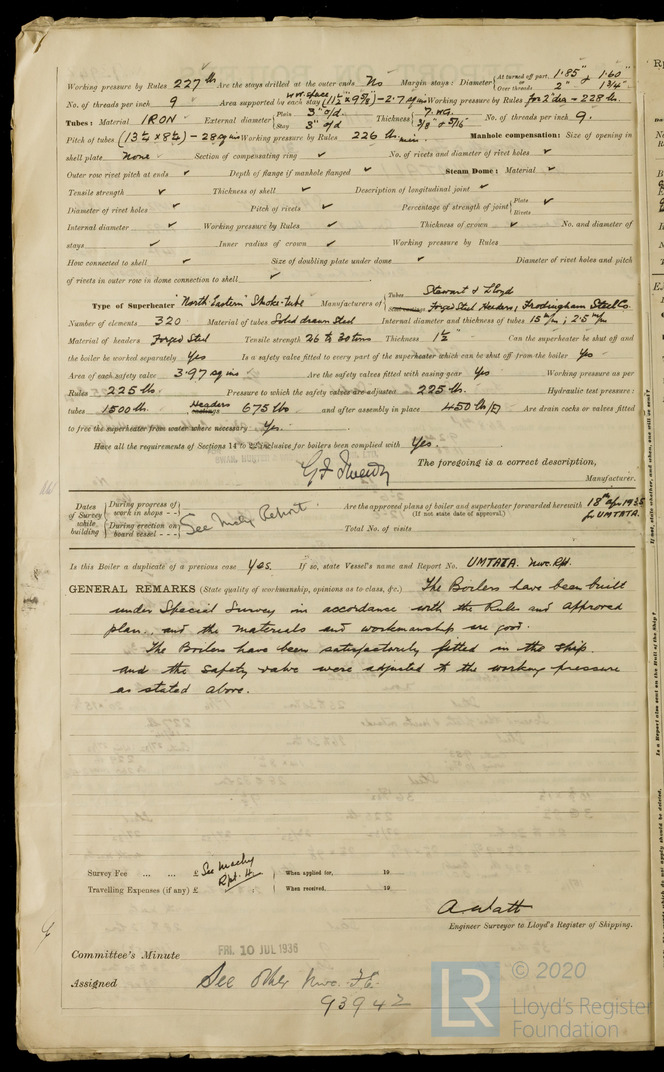 Working pressure by Rules 227 lb Are the stays drilled at the outer ends No Margin stays: Diameter { At turned off part, 1·85" & 1·60"
Over threads 2" 1¾"
No. of threads per inch 9 Area supported by each stay (11½" × 9⅝") – 2·7 sq ins Working pressure by Rules for 2" dia – 228 lb.
Tubes: Material IRON External diameter { Plain 3" o/d. Thickness { 7. WG. No. of threads per inch 9.
Stay 3" o/d 3/8" & 5/16"
Pitch of tubes (13¼ × 8¼) – 28 sq ins Working pressure by Rules 226 lb mini. Manhole compensation: Size of opening in
shell plate None Section of compensating ring ✓ No. of rivets and diameter of rivet holes ✓
Outer row rivet pitch at ends ✓ Depth of flange if manhole flanged ✓ Steam Dome: Material ✓
Tensile strength ✓ Thickness of shell ✓ Description of longitudinal joint ✓
Diameter of rivet holes ✓ Pitch of rivets ✓ Percentage of strength of joint { Plate ✓
Rivets
Internal diameter ✓ Working pressure by Rules ✓ Thickness of crown ✓ No. and diameter of
stays ✓ Inner radius of crown ✓ Working pressure by Rules
How connected to shell ✓ Size of doubling plate under dome ✓ Diameter of rivet holes and pitch
of rivets in outer row in dome connection to shell ✓
Type of Superheater "North Eastern" Smoke-tube Manufacturers of { Tubes Stewart & Lloyd
Forged Steel Headers, Frodingham Steel Co
Number of elements 320 Material of tubes Solid drawn Steel Internal diameter and thickness of tubes 15 m/m; 2·5 m/m
Material of headers Forged Steel Tensile strength 26 to 30 tons Thickness 1½" Can the superheater be shut off and
the boiler be worked separately Yes Is a safety valve fitted to every part of the superheater which can be shut off from the boiler Yes
Area of each safety valve 3·97 sq ins Are the safety valves fitted with easing gear Yes Working pressure as per
Rules 225 lbs. Pressure to which the safety valves are adjusted 225 lb. Hydraulic test pressure:
tubes 1500 lb. Headers 675 lbs and after assembly in place 450 lb/□" Are drain cocks or valves fitted
to free the superheater from water where necessary Yes.
Have all the requirements of Sections 14 to inclusive for boilers been complied with Yes.
The foregoing is a correct description,
Manufacturer.
Dates of Survey while building { During progress of work in shops - - } See Machy Report. Are the approved plans of boiler and superheater forwarded herewith 18th Apr 1935
{ During erection on board vessel - - - } (If not state date of approval.) for UMTATA.
Total No. of visits
Is this Boiler a duplicate of a previous case Yes. If so, state Vessel's name and Report No. UMTATA. Nwc. Rpt.
GENERAL REMARKS (State quality of workmanship, opinions as to class, &c.) The Boilers have been built
under Special Survey in accordance with the Rules and approved
plan.. and the materials and workmanship are good.
The Boilers have been satisfactorily fitted in the ship.
and the safety valve were adjusted to the working pressure
as stated above.
Survey Fee ... ... £ See Machy Rpt. 4. When applied for, 19
Travelling Expenses (if any) £ : : When received, 19
A. Watt
Engineer Surveyor to Lloyd's Register of Shipping.
Committee's Minute FRI. 10 JUL 1936
Assigned See other Nwc. F.E.
93942
LR © 2020
Lloyd's Register
Foundation